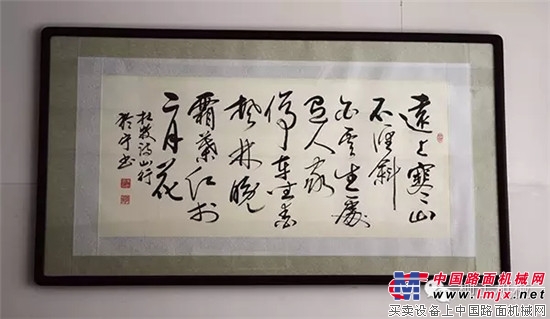 遠上寒山
石径斜
白云生處
有人家
停车坐爱
枫林晚
霜葉红於
二月花
杜牧诗山行
书
中国路面机械网
www.lmjx.net
买卖设备上中国路面机械网